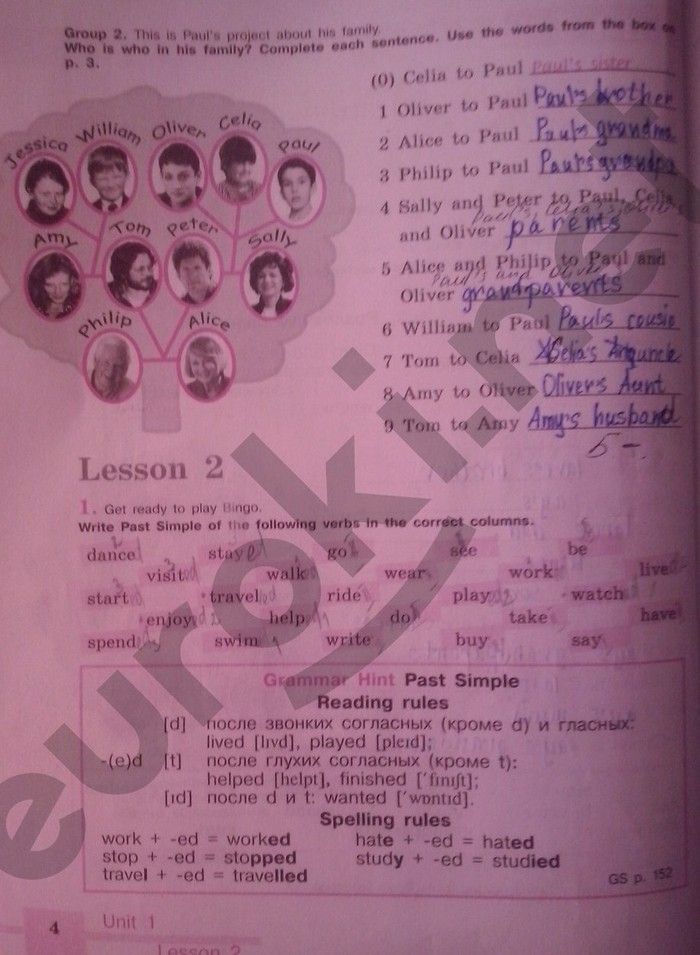 Group 2. This is Paul's project about his family.
Who is who in his family? Complete each sentence. Use the words from the box on
p. 3.
(0) Celia to Paul Paul's sister
1 Oliver to Paul Paul's brother
2 Alice to Paul Paul's grandma
3 Philip to Paul Paul's grandpa
4 Sally and Peter to Paul, Celia
and Oliver parents
5 Alice and Philip to Paul and
Paul's and Oliver
Oliver grandparents
6 William to Paul Paul's cousin
7 Tom to Celia Celia's uncle
8 Amy to Oliver Oliver's Aunt
9 Tom to Amy Amy's husband
5-.
Jessica William Oliver Celia Paul
Amy Tom Peter Sally
Philip Alice
Lesson 2
1. Get ready to play Bingo.
Write Past Simple of the following verbs in the correct columns.
dance stay go see be
visit walk wear work live
start travel ride play watch
enjoy help do take have
spend swim write buy say
Grammar Hint Past Simple
Reading rules
[d] после звонких согласных (кроме d) и гласных:
lived [lɪvd], played [pleɪd];
-(e)d [t] после глухих согласных (кроме t):
helped [helpt], finished ['fɪnɪʃt];
[ɪd] после d и t: wanted ['wɒntɪd].
Spelling rules
work + -ed = worked hate + -ed = hated
stop + -ed = stopped study + -ed = studied
travel + -ed = travelled
GS p. 152
4 Unit 1
Lesson 2
euroki.net